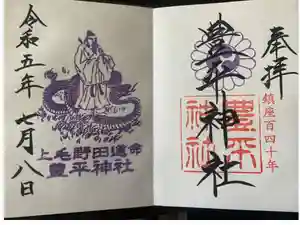 奉拝
鎮座百四十年
豊平神社
豊平神社
上毛野田道命
豊平神社
令和五年七月八日